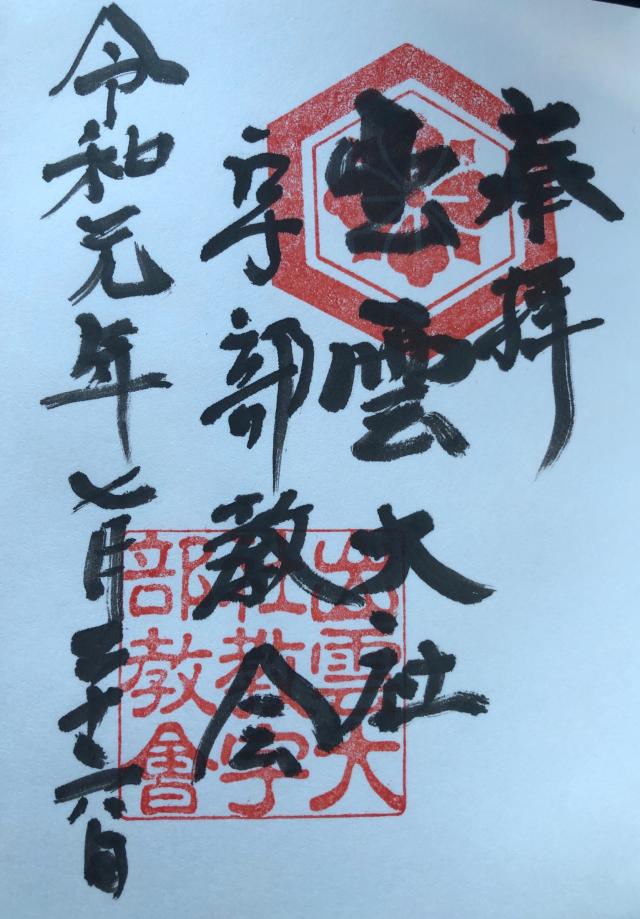 奉拝
出雲大社
宇部教会
令和元年七月二十六日
出雲大
社教宇
部教會